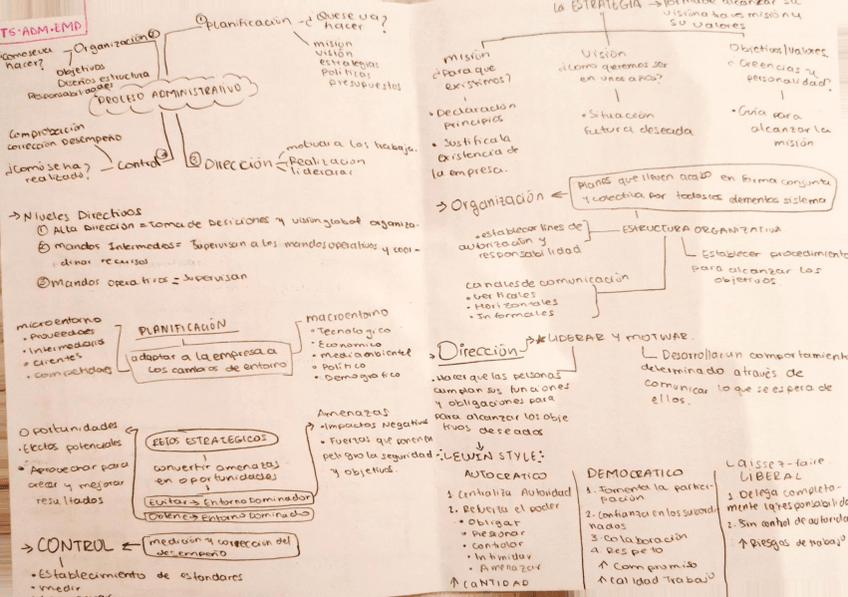 TS·ADM·EMP
① Planificación - ¿Que se va? hacer
misión
visión
estrategias
Políticas
presupuestos
¿Como se va hacer?
Organización ②
Objetivos
Diseños estructura
Responsabilidades
PROCESO ADMINISTRATIVO
Comprobación
corrección Desempeño
¿Como se ha? realizado?
Control ④
③ Dirección
motivar a los trabaja.
Realización
liderar
→ Niveles Directivos
① Alta Dirección = Toma de Desiciones y vision global organiza.
② Mandos Intermedios = Supervisan a los mandos operativos y coor-
dinar recursos
③ Mandos operativos = Supervisan
microentorno
• Proveedores
• Intermediario
• Clientes
• Competidores
PLANIFICACIÓN
adaptar a la empresa a
los cambios de entorno
macroentorno
• Tecnologico
• Económico
• medioambiental
• Político
• Demografico
Oportunidades
• Efectos potenciales
• Aprovechar para
crear y mejorar
resultados
RETOS ESTRATEGICOS
convertir amenazas
en oportunidades
Evitar → Entorno Dominador
Obtener → Entorno Dominado
Amenazas
• Impactos Negativos
• Fuerzas que ponen en
peligro la seguridad
y objetivos.
→ CONTROL ←
medición y corrección del
desempeño
• Establecimiento de estandares
• medir
la ESTRATEGIA →
alcanzar su
visión
misión y
su valores
misión
¿Para que
existimos?
• Declaración
principios
• Justifica la
existencia de
la empresa.
Visión
¿Como queremos ser
en unos años?
• Situación
futura deseada
Objetivos/valores
¿Creencias y
personalidad?
• Guía para
alcanzar la
misión
→ Organización ←
Planos que lleven acabo en forma conjunta
y colectiva por todos los elementos sistema
• establecer lines de
autorización y
responsabilidad
ESTRUCTURA ORGANIZATIVA
Establecer procedimiento
para alcanzar los
objetivos.
canales de comunicación
• Verticales
• Horizontales
• Informales
→ Dirección → * LIDERAR Y MOTIVAR.
• Hacer que las personas
cumplan sus funciones
y obligaciones para
para alcanzar los obje
tivos deseados
Desarrollar un comportamiento
determinado através de
comunicar lo que se espera de
ellos.
LEWIN STYLE:
AUTOCRATICO
1 Centraliza Autoridad
2. Refuerla el poder
• Obligar
• Presionar
• Controlar
• Intimidar
• Amenazar
↑ CANTIDAD
DEMOCRATICO
1. Fomenta la partici-
pación
2. Confianza en los subordi-
nados
3. Colaboración
4 Respeto
↑ Compromiso
↑ Calidad Trabajo
Laissez-faire
LIBERAL
1 Delega completa-
mente la responsabilida
2. Sin control de autorida
↑ Riesgos de trabajo